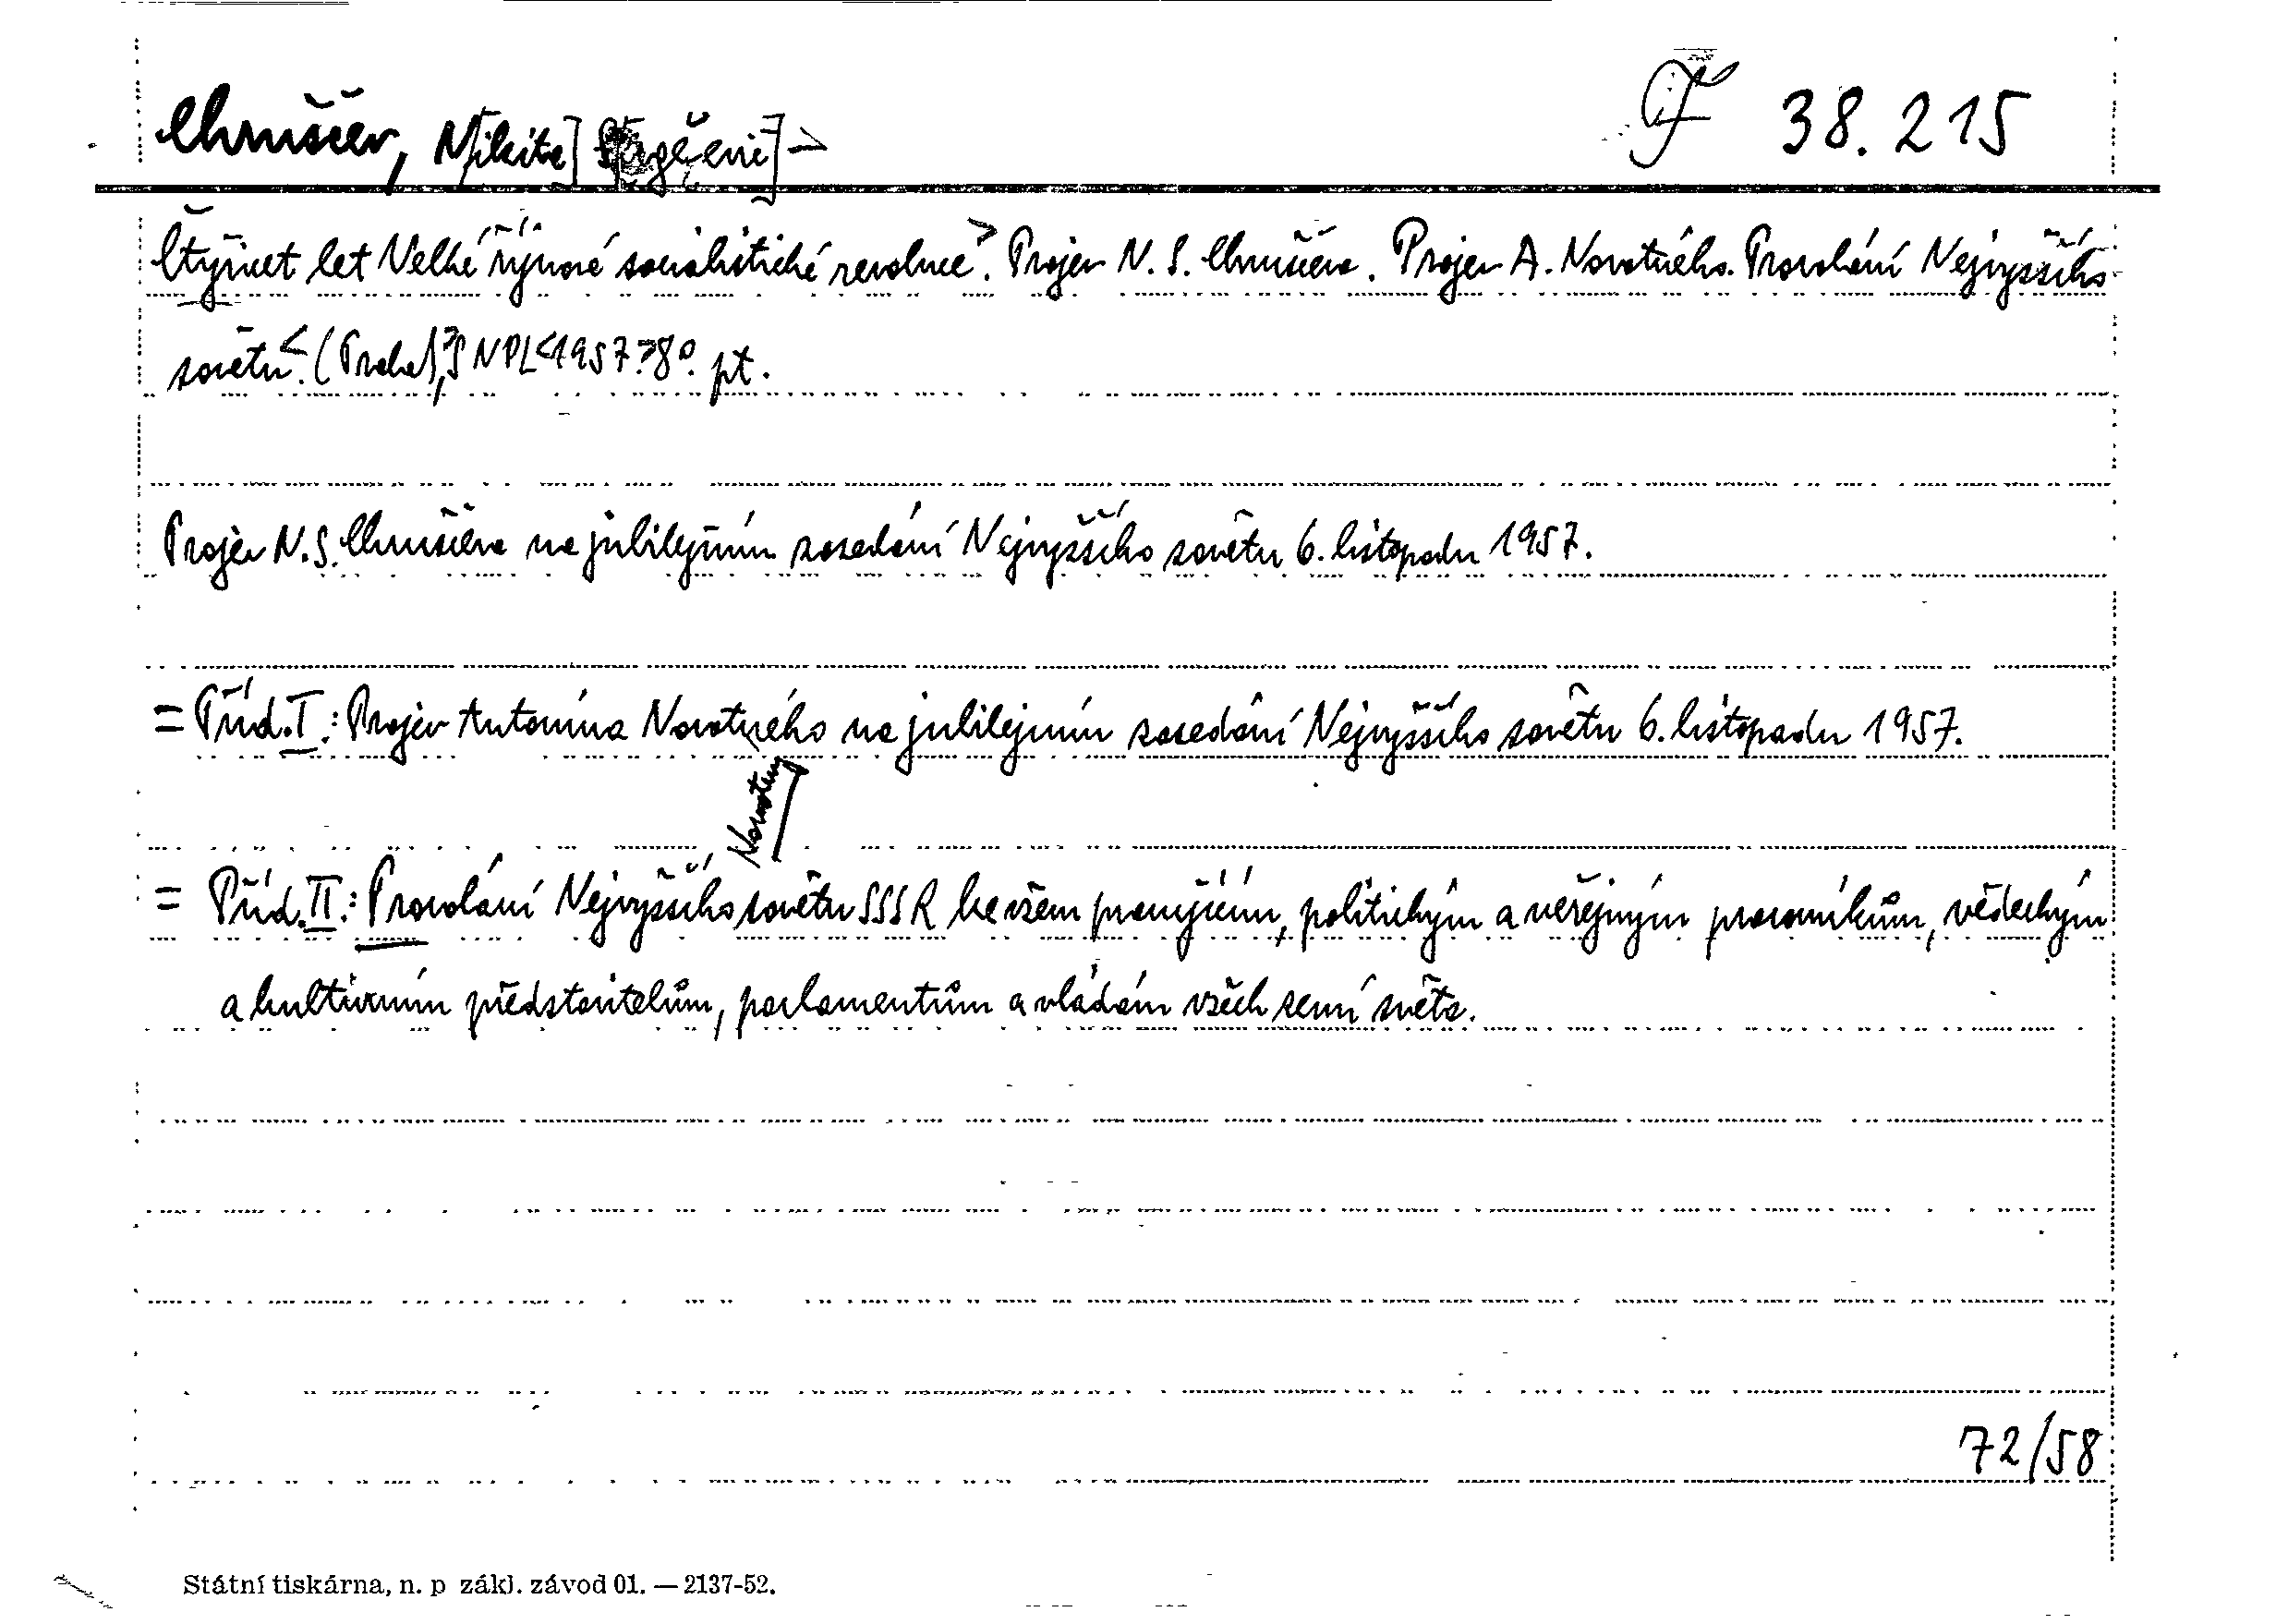 Chruščev, N[ikita] S[ergěevič] –
F 38.215
Čtyřicet let Velké říjnové socialistické revoluce>. Projev N. S. Chruščeva. Projev A. Novotného. Provolání Nejvyššího
sovětu<. (Praha), SNPL <1957> 8°. pt.
Projev N. S. Chruščeva na jubilejním zasedání Nejvyššího sovětu 6. listopadu 1957.
= Příd. I.: Projev Antonína Novotného na jubilejním zasedání Nejvyššího sovětu 6. listopadu 1957.
Novotný
= Příd. II.: Provolání Nejvyššího sovětu SSSR ke všem pracujícím, politickým a veřejným pracovníkům, vědeckým
a kulturním představitelům, parlamentům a vládám všech zemí světa.
72/58
Státní tiskárna, n. p zákl. závod 01. — 2137-52.